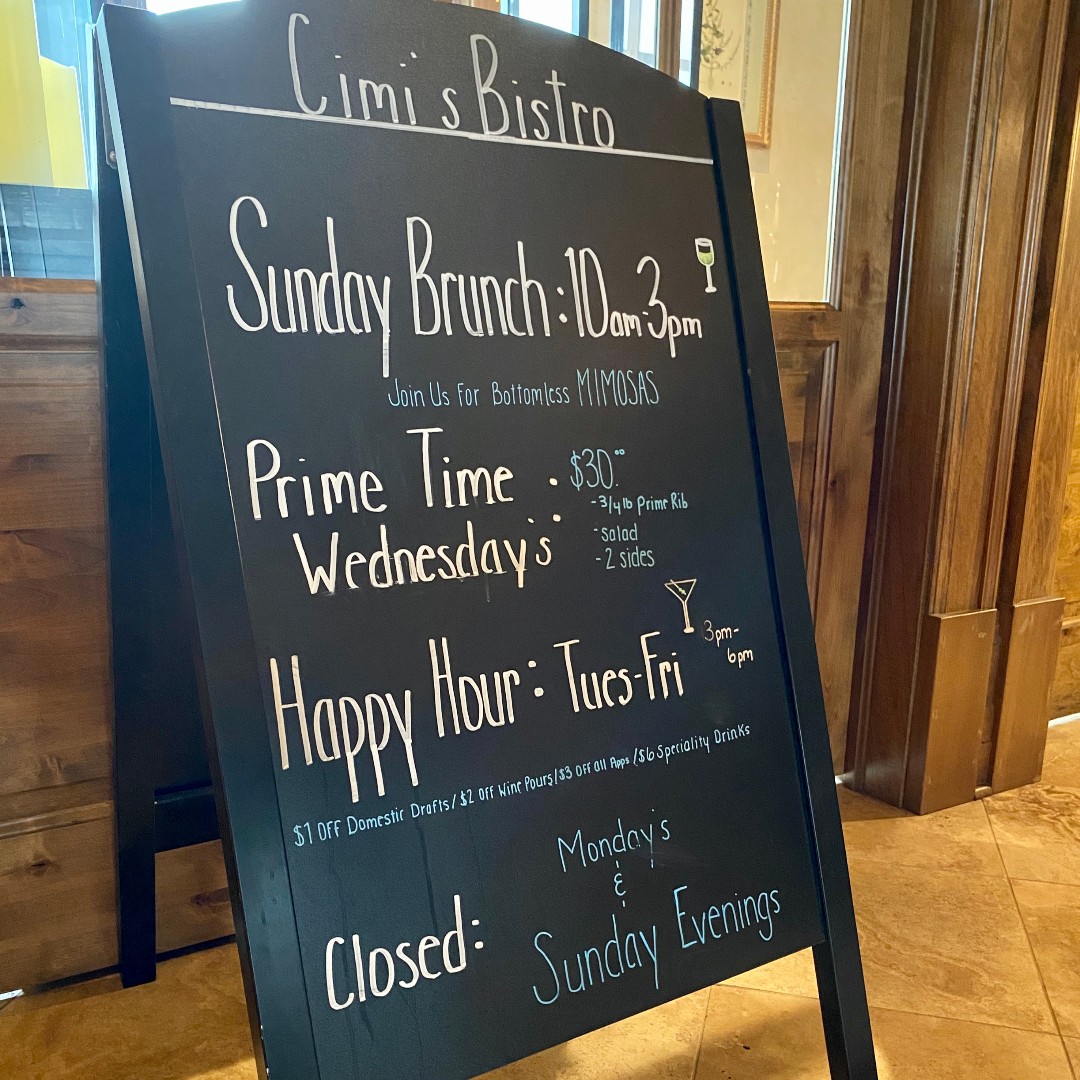 Cimi's Bistro
Sunday Brunch: 10am-3pm
Join Us For Bottomless MIMOSAS
Prime Time
Wednesday's :
$30.00
-3/4 lb Prime Rib
-Salad
-2 sides
Happy Hour: Tues-Fri
3pm-
6pm
$1 OFF Domestic Drafts/ $2 OFF Wine Pours/ $3 OFF all Apps / $6 Speciality Drinks
Closed:
Monday's
&
Sunday Evenings